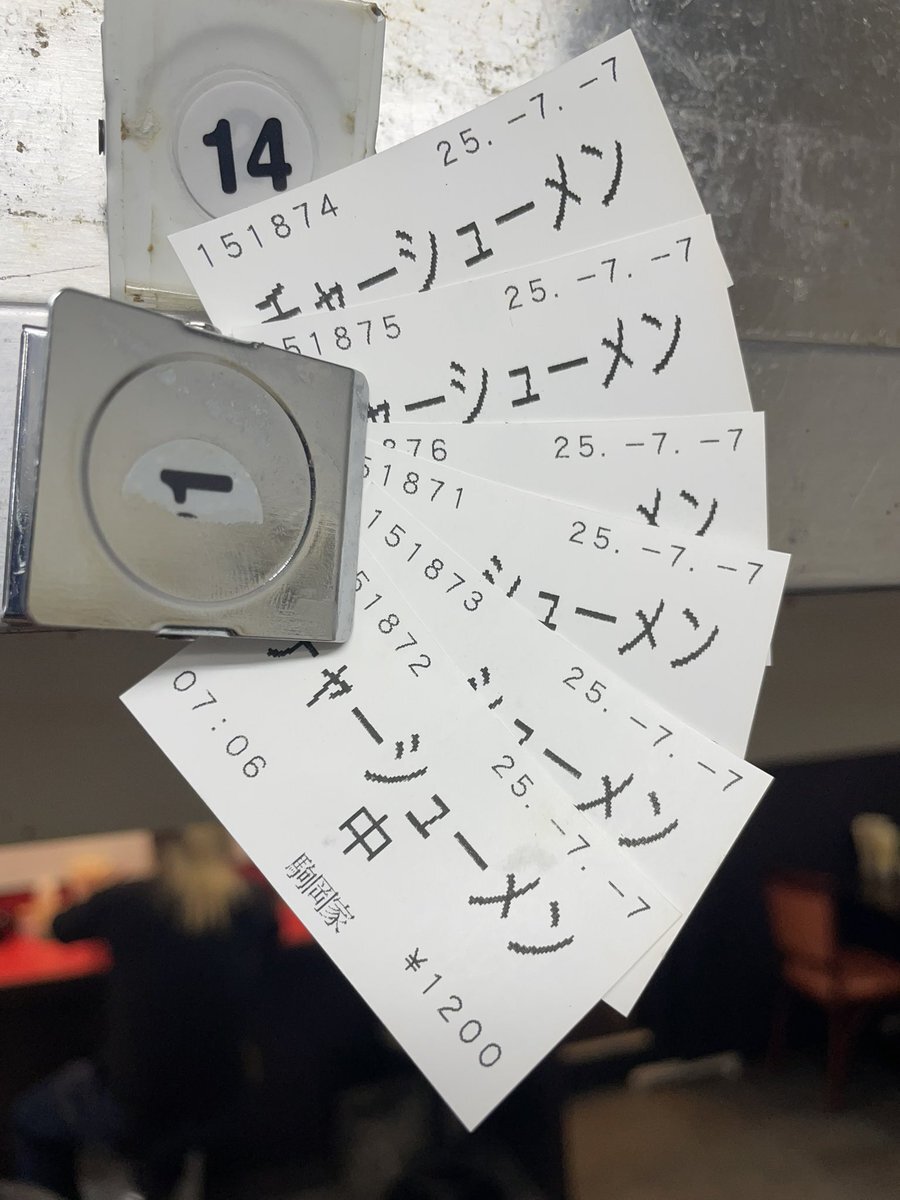 14
151874 25.-7.-7
チャーシューメン
51875 25.-7.-7
ャーシューメン
876 25.-7.-7
メン
51871 25.-7.-7
シューメン
151873 25.-7.-7
シューメン
51872 25.-7.-7
チャーシューメン
中
07:06
駒岡家
¥1200
1